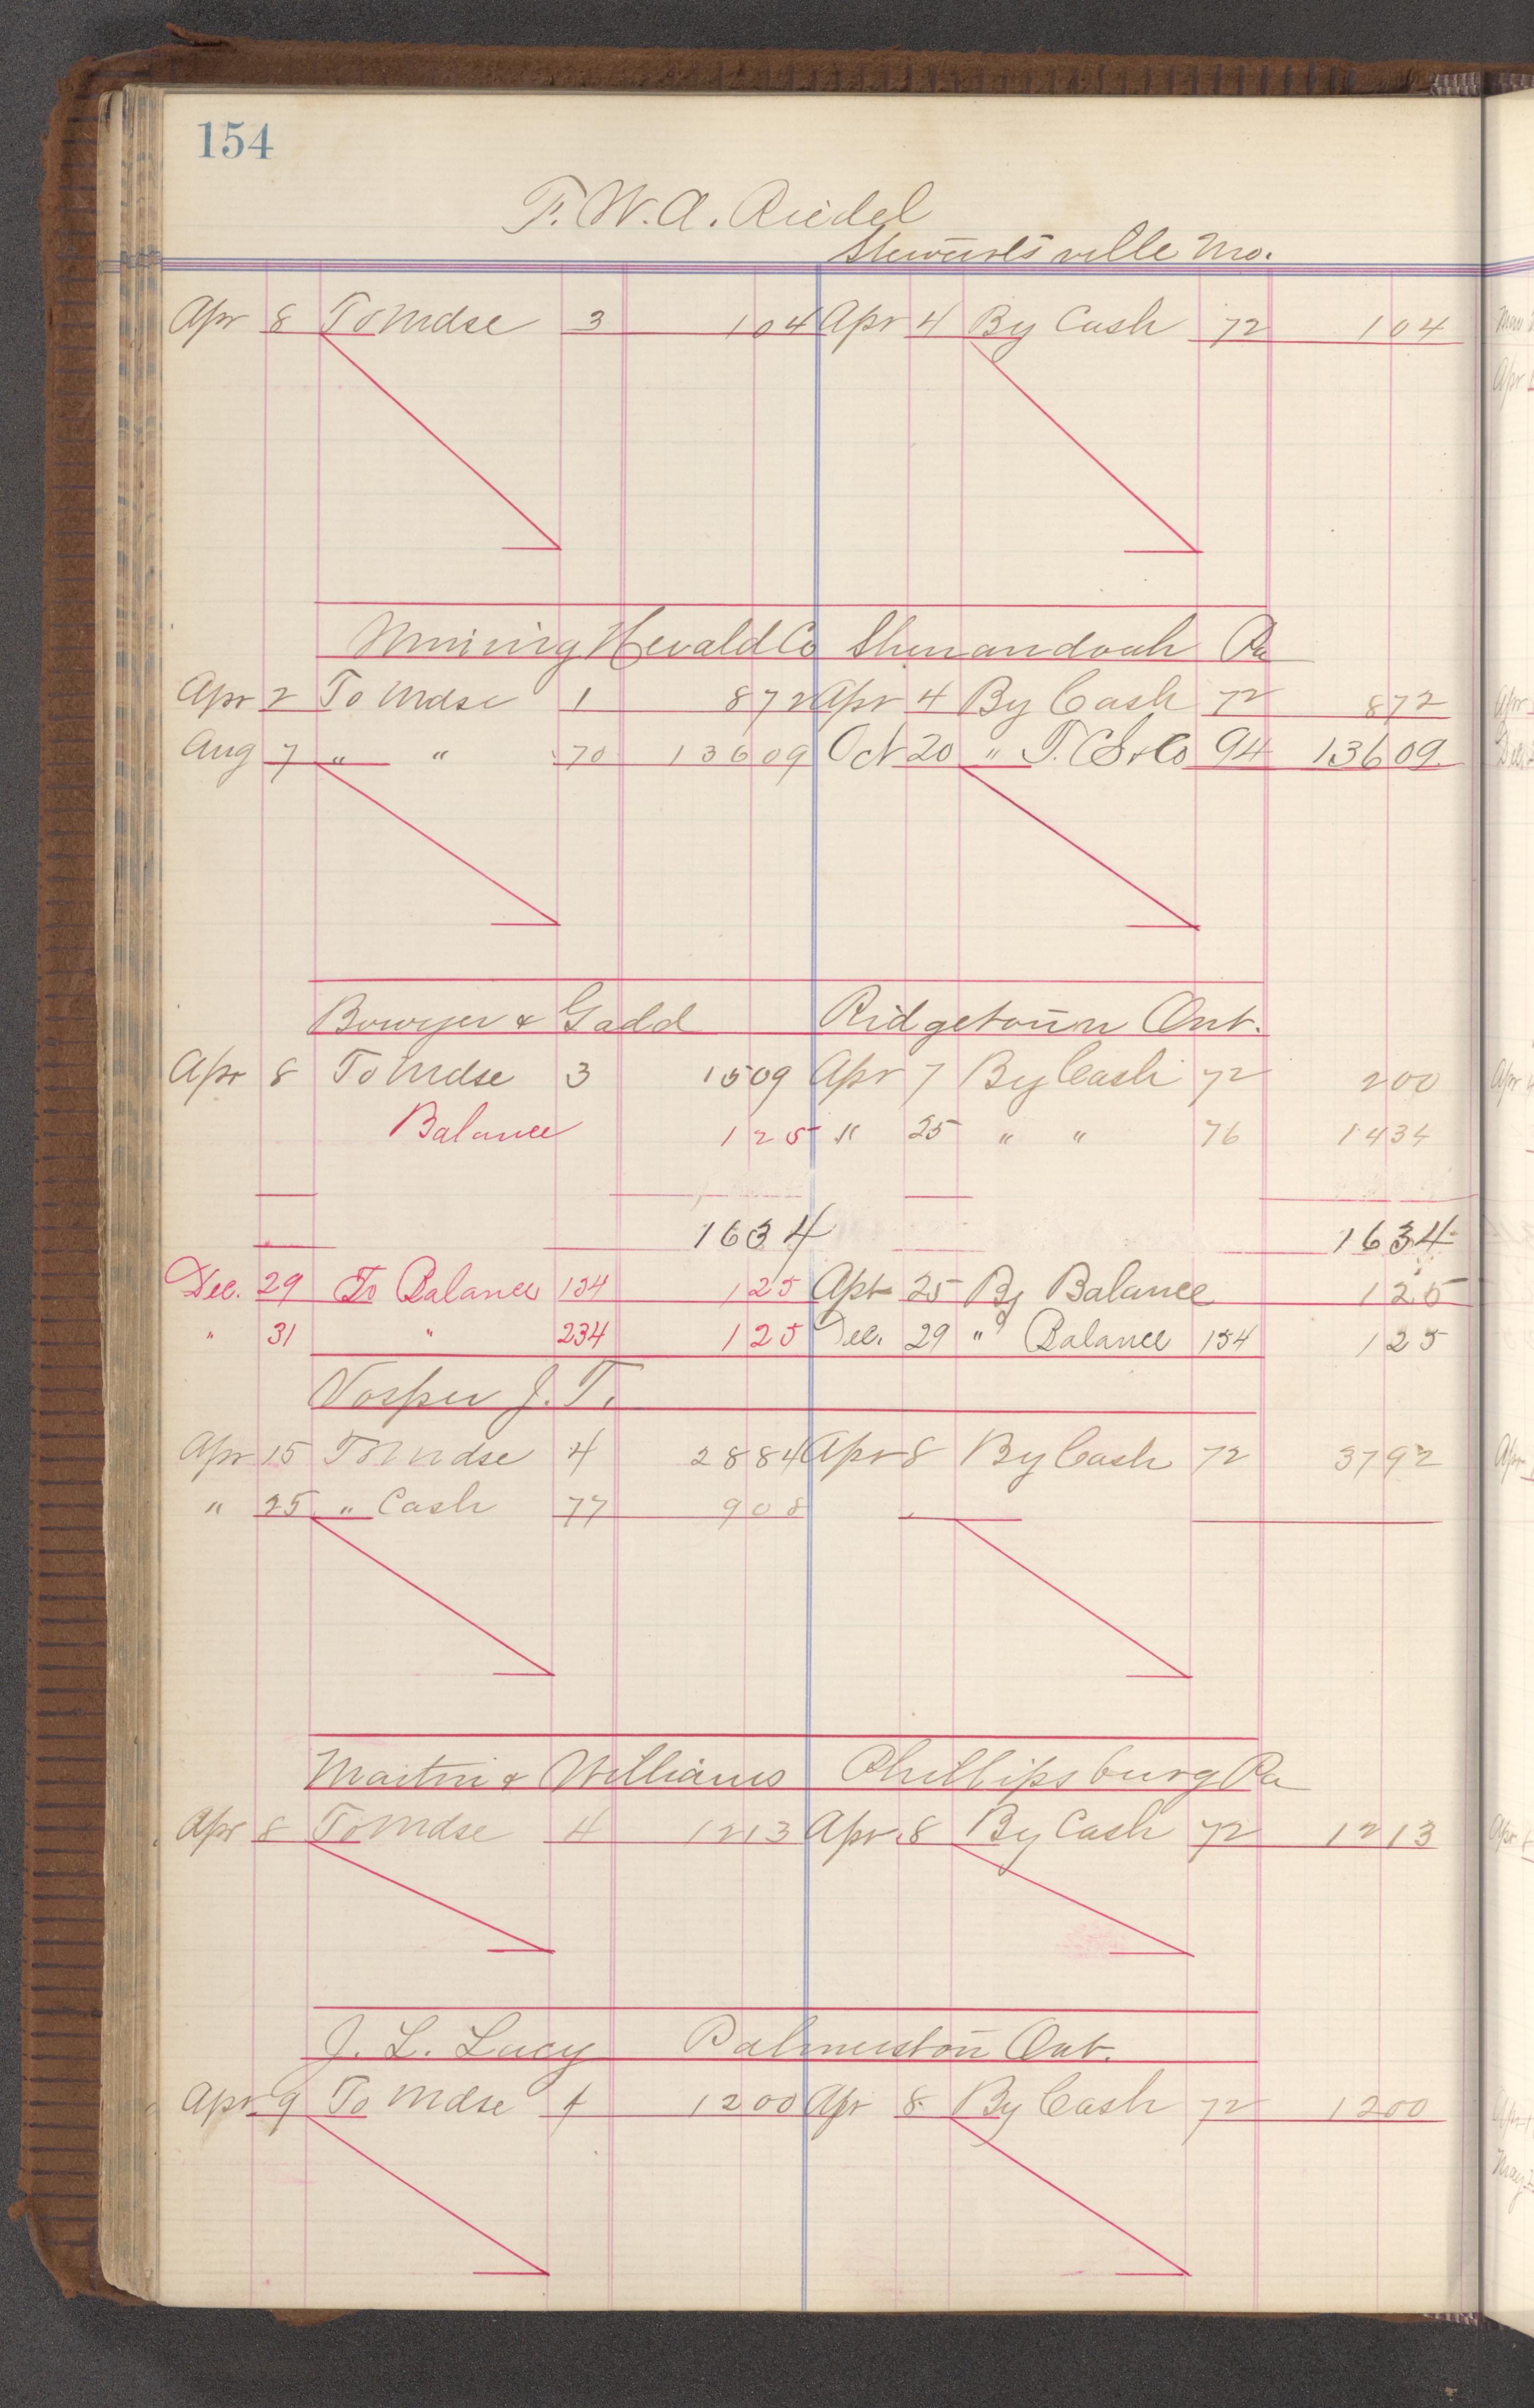 154
F. W. A. Riedel
Stewartsville Mo.
Apr 8 To Mdse 3 104 Apr 4 By Cash 72 104
Mining Herald Co Shenandoah Pa
Apr 2 To Mdse 1 872 Apr 4 By Cash 72 872
Aug 7 " " 70 13609 Oct 20 " 94 13609
Bowyer & Gadd Ridgetown Ont.
Apr 8 To Mdse 3 1509 Apr 7 By Cash 72 200
Balance 125 " 25 " " 76 1434
1634 1634
Dec. 29 To Balance 154 125 Apr 25 By Balance 125
" 31 " 234 125 Dec. 29 " Balance 154 125
Vosper J. T.
Apr 15 To Mdse 4 2884 Apr 8 By Cash 72 3792
" 25 " Cash 77 908
Martin & Williams Phillipsburg Pa
Apr 8 To Mdse 4 1213 Apr 8 By Cash 72 1213
J. L. Lucy Palmerston Ont.
Apr 9 To Mdse 4 1200 Apr 8 By Cash 72 1200